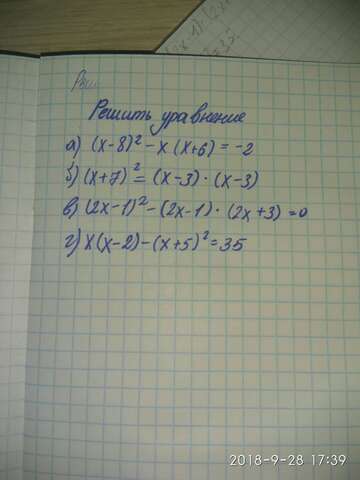 Реш
Решить уравнение
а) (x-8)² - x (x+6) = -2
б) (x+7)² = (x-3) · (x-3)
в) (2x-1)² - (2x-1) · (2x+3) = 0
г) x(x-2) - (x+5)² = 35
2018-9-28 17:39